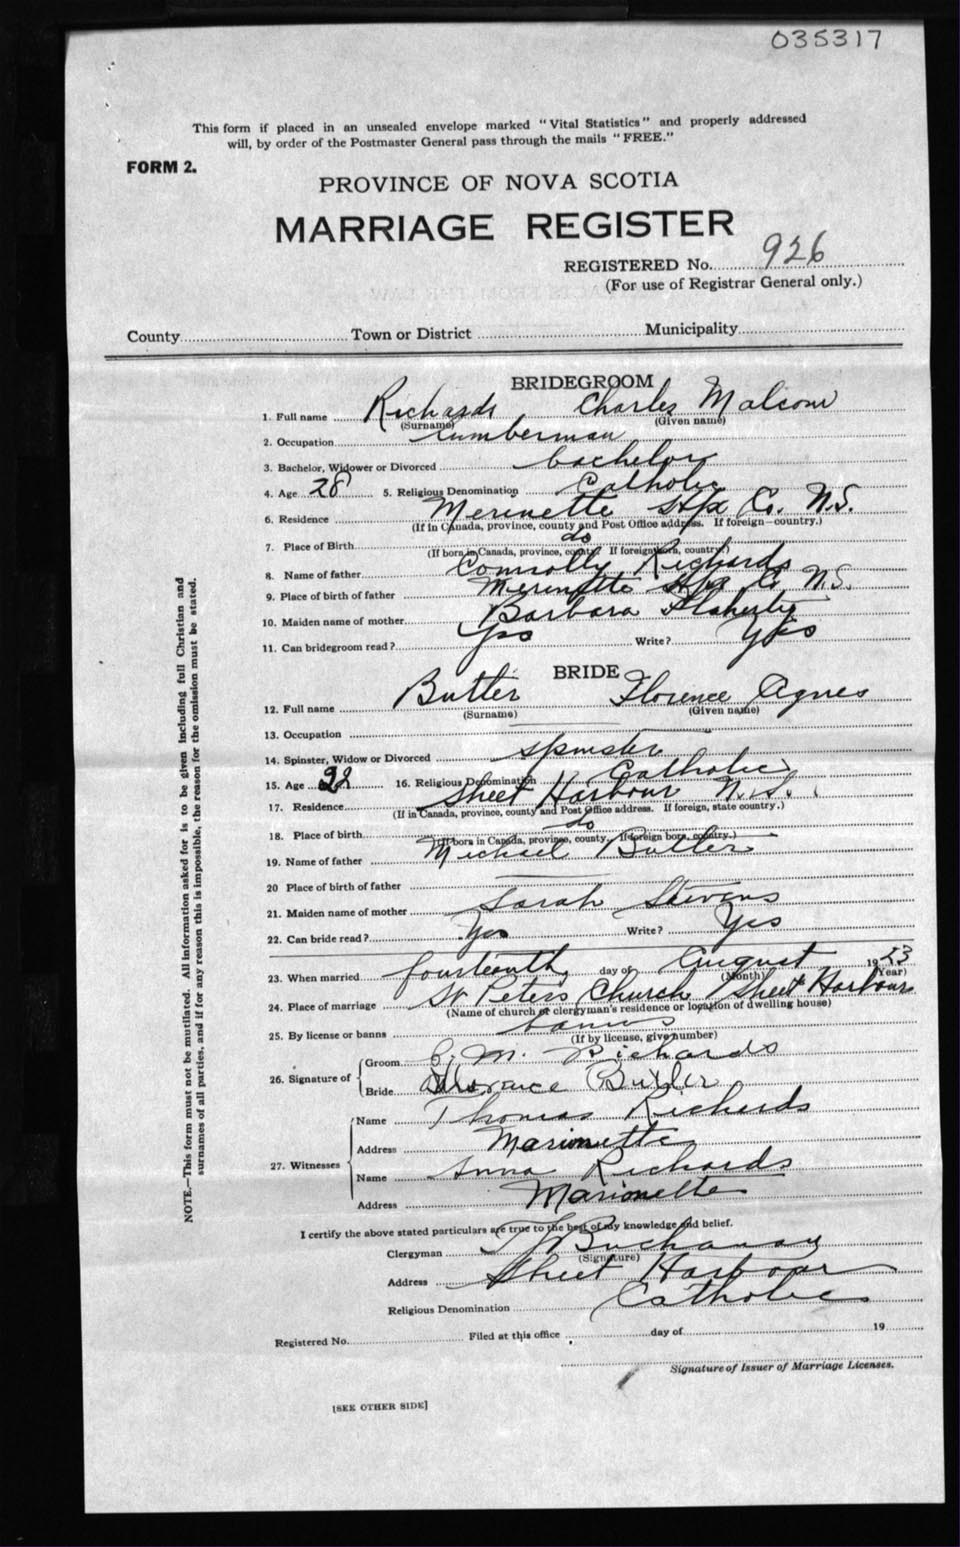 035317
This form if placed in an unsealed envelope marked "Vital Statistics" and properly addressed
will, by order of the Postmaster General pass through the mails "FREE."
FORM 2.
PROVINCE OF NOVA SCOTIA
MARRIAGE REGISTER
REGISTERED No. 926
(For use of Registrar General only.)
County Town or District Municipality
BRIDEGROOM
1. Full name Richards Charles Malcom
(Surname) (Given name)
2. Occupation Lumberman
3. Bachelor, Widower or Divorced bachelor
4. Age 28 5. Religious Denomination Catholic
6. Residence Merinette Hfx Co. N.S.
(If in Canada, province, county and Post Office address. If foreign—country.)
7. Place of Birth do
(If born in Canada, province, county? If foreign born, country.)
8. Name of father Connolly Richards
9. Place of birth of father Merinette Hfx Co N.S.
10. Maiden name of mother Barbara Flaherty
11. Can bridegroom read? Yes Write? Yes
BRIDE
12. Full name Butler Florence Agnes
(Surname) (Given name)
13. Occupation
14. Spinster, Widow or Divorced spinster
15. Age 16. Religious Denomination Catholic
17. Residence Sheet Harbour N.S.
(If in Canada, province, county and Post Office address. If foreign, state country.)
18. Place of birth do
(If born in Canada, province, county. If foreign born, country.)
19. Name of father Michael Butler
20 Place of birth of father
21. Maiden name of mother Sarah Stevens
22. Can bride read? Yes Write? Yes
23. When married fourteenth day of August 1923
(Month) (Year)
24. Place of marriage St Peters Church Sheet Harbour
(Name of church or clergyman's residence or location of dwelling house)
25. By license or banns banns
(If by license, give number)
26. Signature of Groom C. M. Richards
Bride Florence Butler
27. Witnesses Name Thomas Richards
Address Marionette
Name Anna Richards
Address Marionette
I certify the above stated particulars are true to the best of my knowledge and belief.
Clergyman T J Buchanan
(Signature)
Address Sheet Harbour
Religious Denomination Catholic
Registered No. Filed at this office day of 19
Signature of Issuer of Marriage Licenses.
[SEE OTHER SIDE]
NOTE.—This form must not be mutilated. All information asked for is to be given including full Christian and
surnames of all parties, and if for any reason this is impossible, the reason for the omission must be stated.